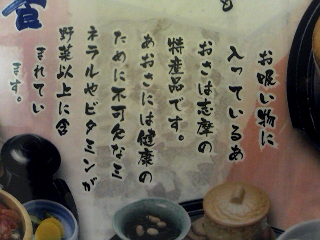 お吸い物に
入っているあ
おさは志摩の
特産品です。
あおさには健康の
ために不可欠なミ
ネラルやビタミンが
野菜以上に含
まれてい
ます。